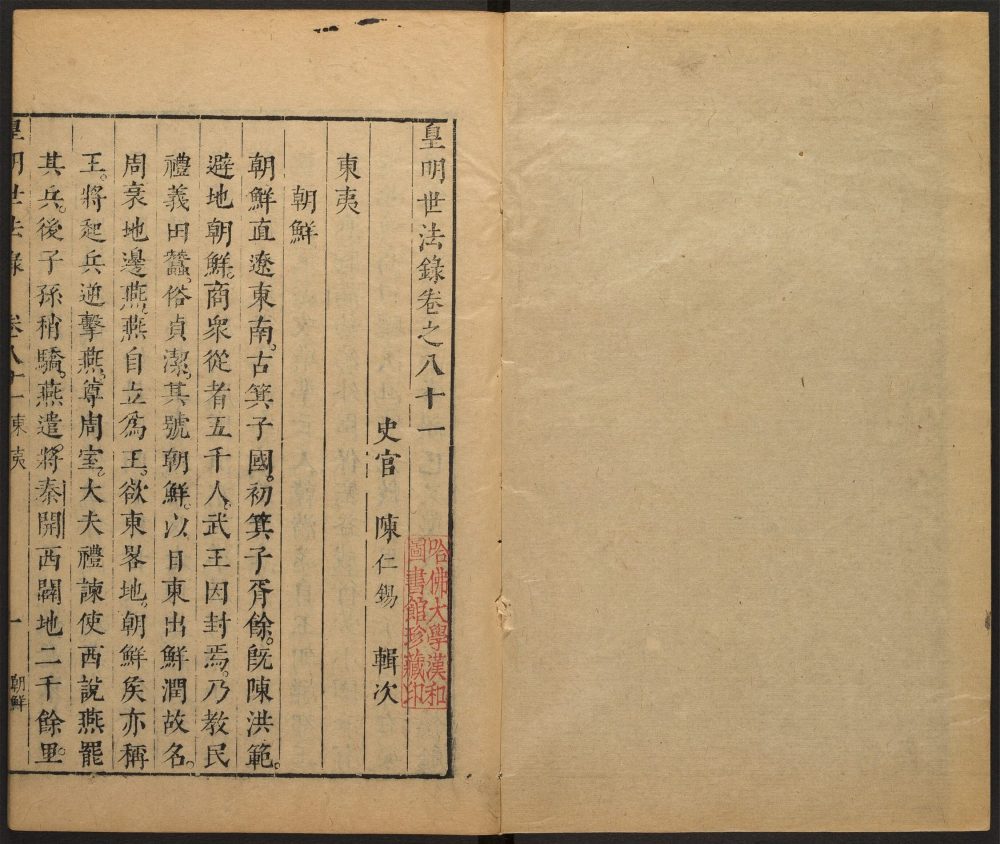 皇明世法錄卷之八十一
史官 陳仁錫 輯次
哈佛大學漢和
圖書館珍藏印
東夷
朝鮮
朝鮮直遼東南。古箕子國。初箕子胥餘。旣陳洪範。
避地朝鮮。商衆從者五千人。武王因封焉。乃敎民
禮義田蠶。俗貞潔。其號朝鮮。以日東出鮮潤故名。
周衰地邊燕。燕自立爲王。欲東畧地。朝鮮矦亦稱
王。將起兵逆擊燕。尊周室。大夫禮諫使西說燕罷
其兵。後子孫稍驕。燕遣將秦開西闢地二千餘里。
皇明世法錄 卷八十一 東夷 一 朝鮮